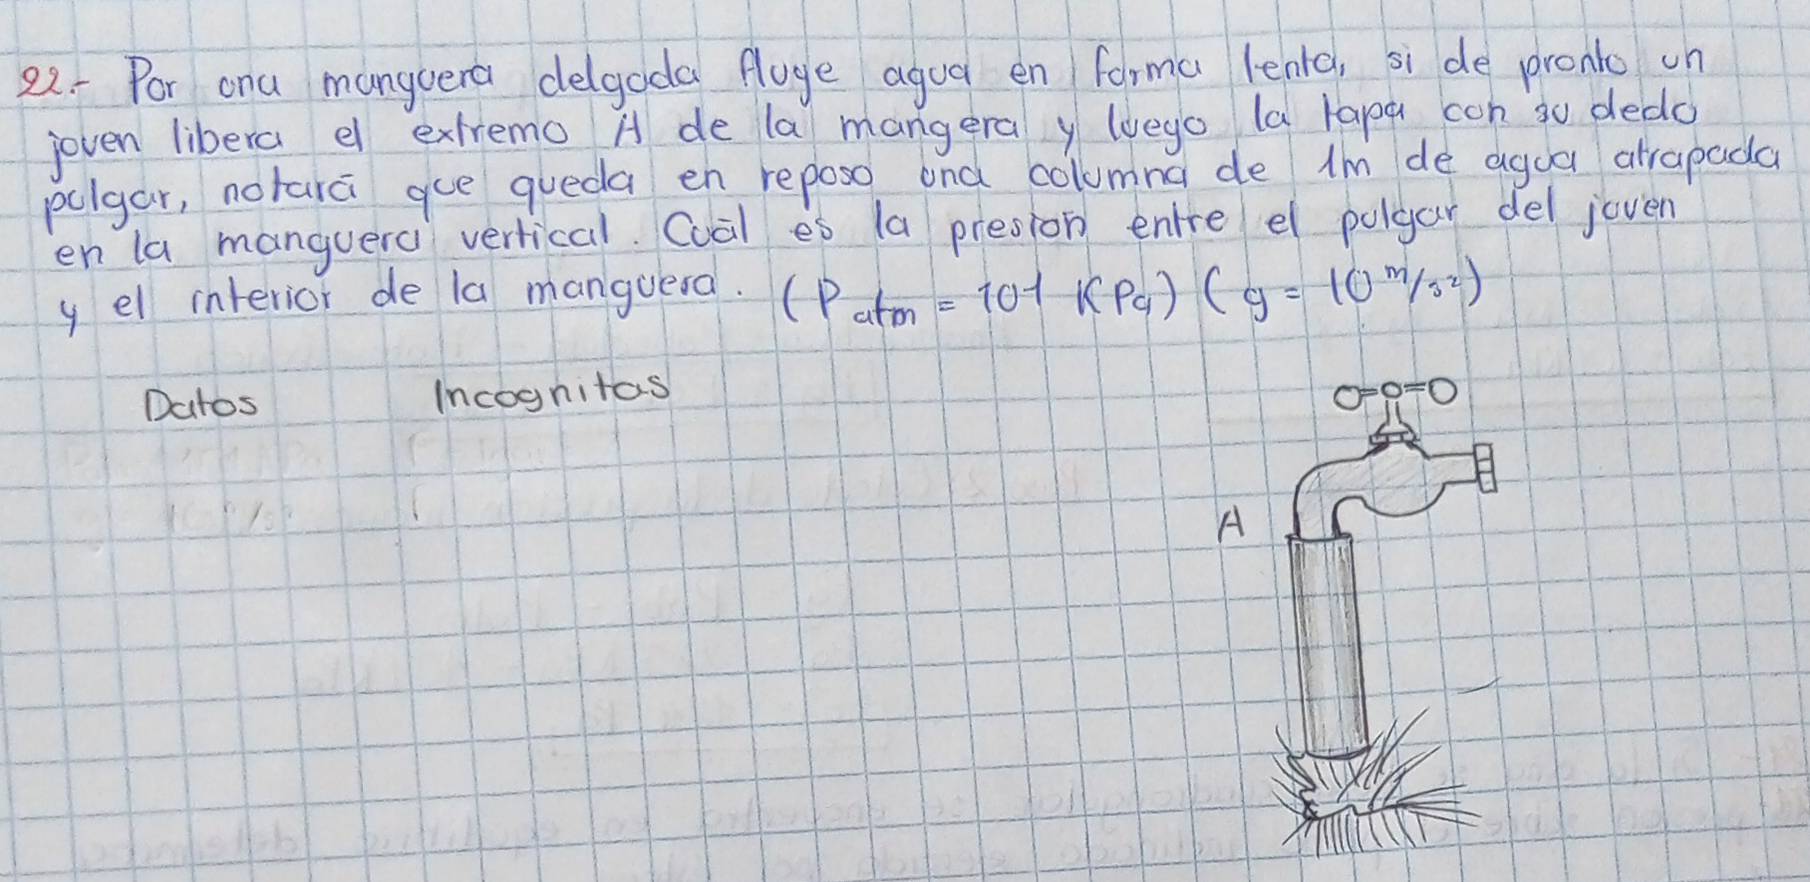 22.- Por una manguera delgada fluye agua en forma lenta, si de pronto un
joven libera el extremo A de la mangera y luego la tapa con su dedo
pulgar, notará que queda en reposo una columna de 1m de agua atrapada
en la manguera vertical. Cuál es la presion entre el pulgar del joven
y el interior de la manguera. (P atm = 101 KPa) (g = 10 m/s²)
Datos Incognitas
A